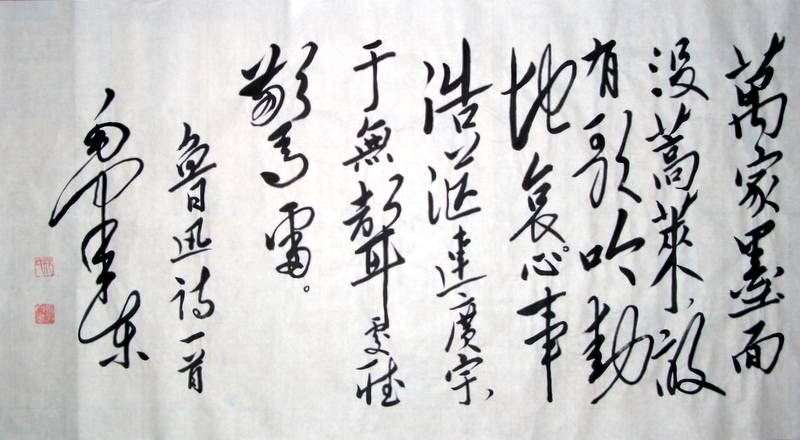 萬家墨面
没蒿萊，敢
有歌吟動
地哀。心事
浩茫連廣宇，
于無聲處聽
驚雷。
魯迅詩一首
毛澤東